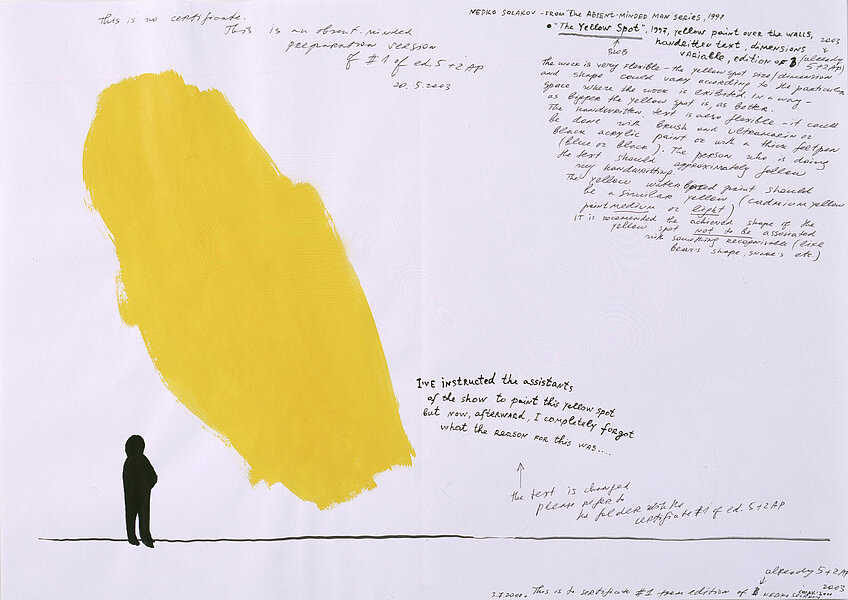 This is no certificate.
This is an absent-minded
preparation version
of #1 of ed. 5+2 AP
20.5.2003
NEDKO SOLAKOV - FROM "The ABSENT-MINDED MAN SERIES, 1997
• "The Yellow Spot", 1997, yellow paint over the walls,
BLOB
handwritten text, dimensions
variable, edition of
2003
(already
5+2AP)
The work is very flexible - the yellow spot size/dimension
and shape could vary according to the particular
space where the work is exhibited. In a way -
as bigger the yellow spot is, as better.
The handwritten text is also flexible - it could
be done with brush and ultramarin or
black acrylic paint or with a thick feltpen
(blue or black). The person who is doing
the text should approximately follow
my handwriting.
The yellow water based paint should
be a similar yellow (cadmium yellow
paint medium or light)
IT is recomended the achieved shape of the
yellow spot not to be associated
with something recognizable (like
bear's shape, etc.)
I'VE instructed the assistants
of the show to paint this yellow spot
but now, afterward, I completely forgot
what the reason for this was....
the text is changed
please refer to
he folder with the
certificate #1 of ed. 5+2 AP
already 5+2 AP
2003
3.7.2000. This is to sertificate #1 from edition of NEDKO